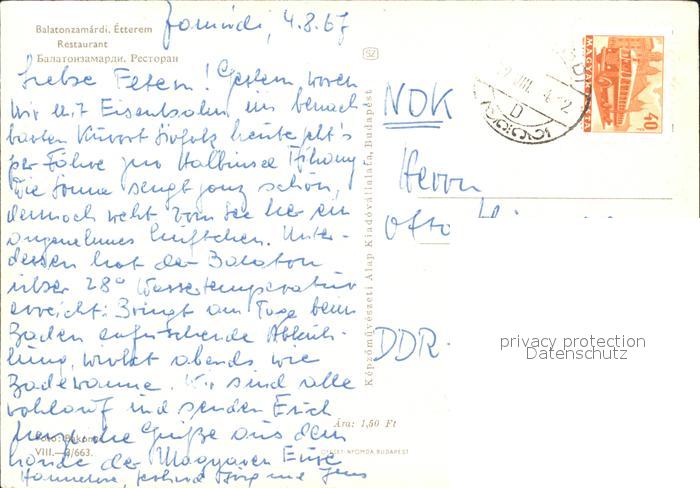 Balatonzamárdi, Étterem
Restaurant
Балатонзамарди, Ресторан
Zamárdi, 4.8.67
Liebe Eltern! Gestern waren
wir m.d. Eisenbahn im benach-
barten Kurort Siofok, heute geht's
per Fähre zur Halbinsel Tihany.
Die Sonne sengt ganz schön,
dennoch weht vom See her ein
angenehmes Lüftchen. Unter-
dessen hat der Balaton
über 28° Wassertemperatur
erreicht: Bringt am Tage beim
Baden erfrischende Abküh-
lung, wirkt abends wie
Badewanne. Wir sind alle
wohlauf und senden Euch
herzliche Grüße aus dem
Lande der Magyaren Eure
Hannelore, Jörg und Jens
Foto: Bakonyi
VIII.—3/663.
SZ
Képzőművészeti Alap Kiadóvállalata, Budapest
Ára: 1,50 Ft
OFFSET-NYOMDA, BUDAPEST
NDK
Herrn
Otto
DDR
MAGYAR POSTA
40 f
D
privacy protection
Datenschutz